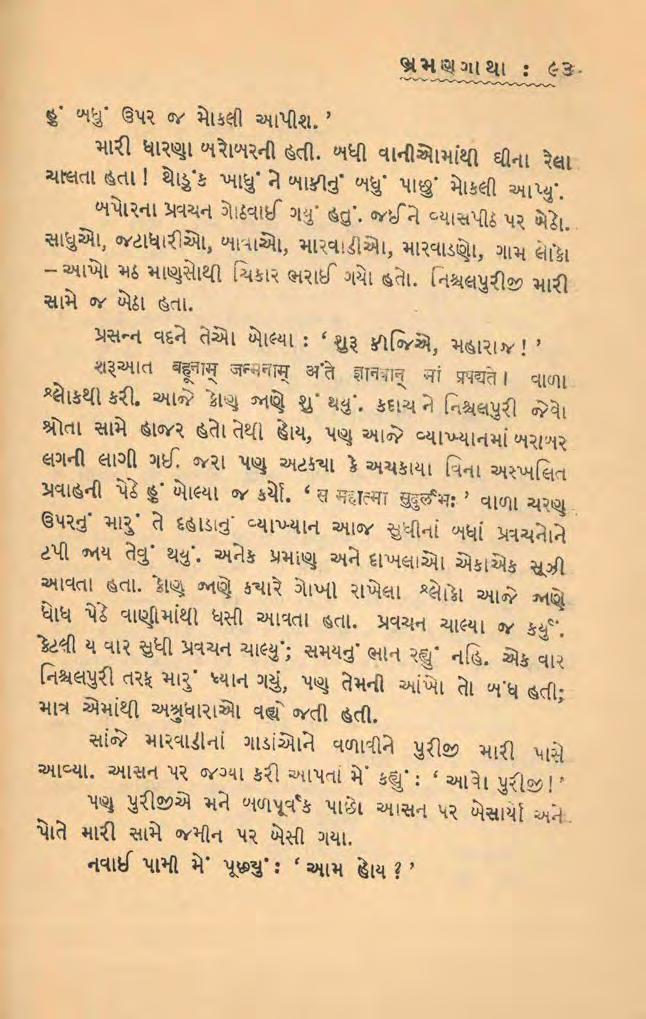 ભ્રમણગાથા : ૯૩
હું બધું ઉપર જ મોકલી આપીશ. ’
મારી ધારણા બરોબરની હતી. બધી વાનીઓમાંથી ઘીના રેલા
ચાલતા હતા ! થોડુંક ખાધું ને બાકીનું બધું પાછું મોકલી આપ્યું.
બપોરના પ્રવચન ગોઠવાઈ ગયું હતું. જઈને વ્યાસપીઠ પર બેઠો.
સાધુઓ, જટાધારીઓ, બાવાઓ, મારવાડીઓ, મારવાડણો, ગામ લોકો
– આખો મઠ માણસોથી ચિકાર ભરાઈ ગયો હતો. નિશ્ચલપુરીજી મારી
સામે જ બેઠા હતા.
પ્રસન્ન વદને તેઓ બોલ્યા : ‘ શુરૂ કીજિએ, મહારાજ ! ’
શરૂઆત बहूनाम् जन्मनाम् અંતે ज्ञानवान् मां प्रपद्यते। વાળા
શ્લોકથી કરી. આજે કોણ જાણે શું થયું. કદાચ ને નિશ્ચલપુરી જેવો
શ્રોતા સામે હાજર હતો તેથી હોય, પણ આજે વ્યાખ્યાનમાં બરાબર
લગની લાગી ગઈ. જરા પણ અટક્યા કે અચકાયા વિના અસ્ખલિત
પ્રવાહની પેઠે હું બોલ્યા જ કર્યો. ‘ स महात्मा सुदुर्लभः ’ વાળા ચરણ
ઉપરનું મારું તે દહાડાનું વ્યાખ્યાન આજ સુધીનાં બધાં પ્રવચનોને
ટપી જાય તેવું થયું. અનેક પ્રમાણ અને દાખલાઓ એકાએક સૂઝી
આવતા હતા. કોણ જાણે ક્યારે ગોખી રાખેલા શ્લોકો આજે જાણે
ધોધ પેઠે વાણીમાંથી ધસી આવતા હતા. પ્રવચન ચાલ્યા જ કર્યું.
કેટલી ય વાર સુધી પ્રવચન ચાલ્યું; સમયનું ભાન રહ્યું નહિ. એક વાર
નિશ્ચલપુરી તરફ મારું ધ્યાન ગયું, પણ તેમની આંખો તો બંધ હતી;
માત્ર એમાંથી અશ્રુધારાઓ વહ્યે જતી હતી.
સાંજે મારવાડીનાં ગાડાંઓને વળાવીને પુરીજી મારી પાસે
આવ્યા. આસન પર જગ્યા કરી આપતાં મેં કહ્યું : ‘ આવો પુરીજી ! ’
પણ પુરીજીએ મને બળપૂર્વક પાછો આસન પર બેસાર્યો અને
પોતે મારી સામે જમીન પર બેસી ગયા.
નવાઈ પામી મેં પૂછ્યું : ‘ આમ હોય ? ’